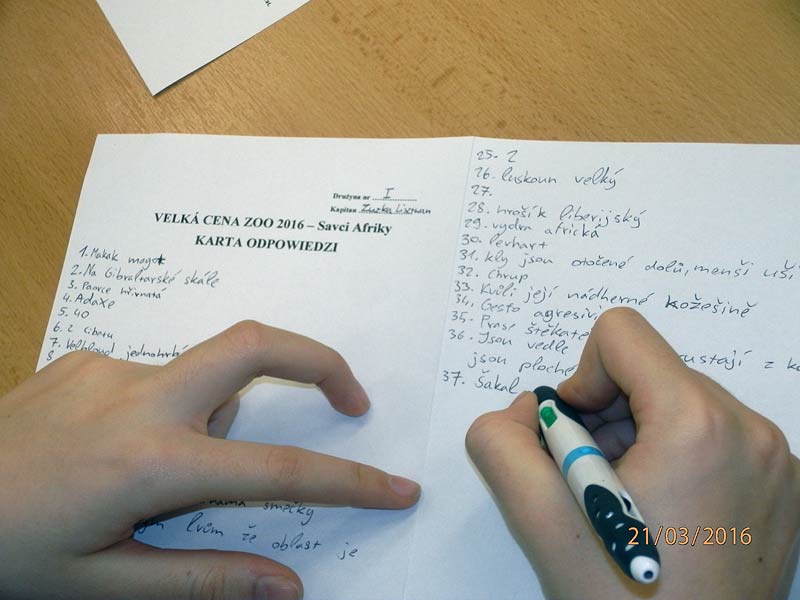 Drużyna nr I
Kapitan
VELKÁ CENA ZOO 2016 – Savci Afriky
KARTA ODPOWIEDZI
1. Makak magot
2. Na Gibraltarské skále
3. Paovce hřivnatá
4. Adaxe
5. 40
6. z Cibetu
7. Velbloud jednohrbý
8.
smečky
lvům že oblast je
25. 2
26. luskoun velký
27.
28. hrošík liberijský
29. vydra africká
30. levhart
31. kly jsou otočené dolů, menší uši
32. Chrup
33. Kvůli její nádherné kožešině
34. Gesto agresivi
35. Prase štěkate
36. Jsou vedle
jsou ploché rustají z ko
37. Šakal
21/03/2016